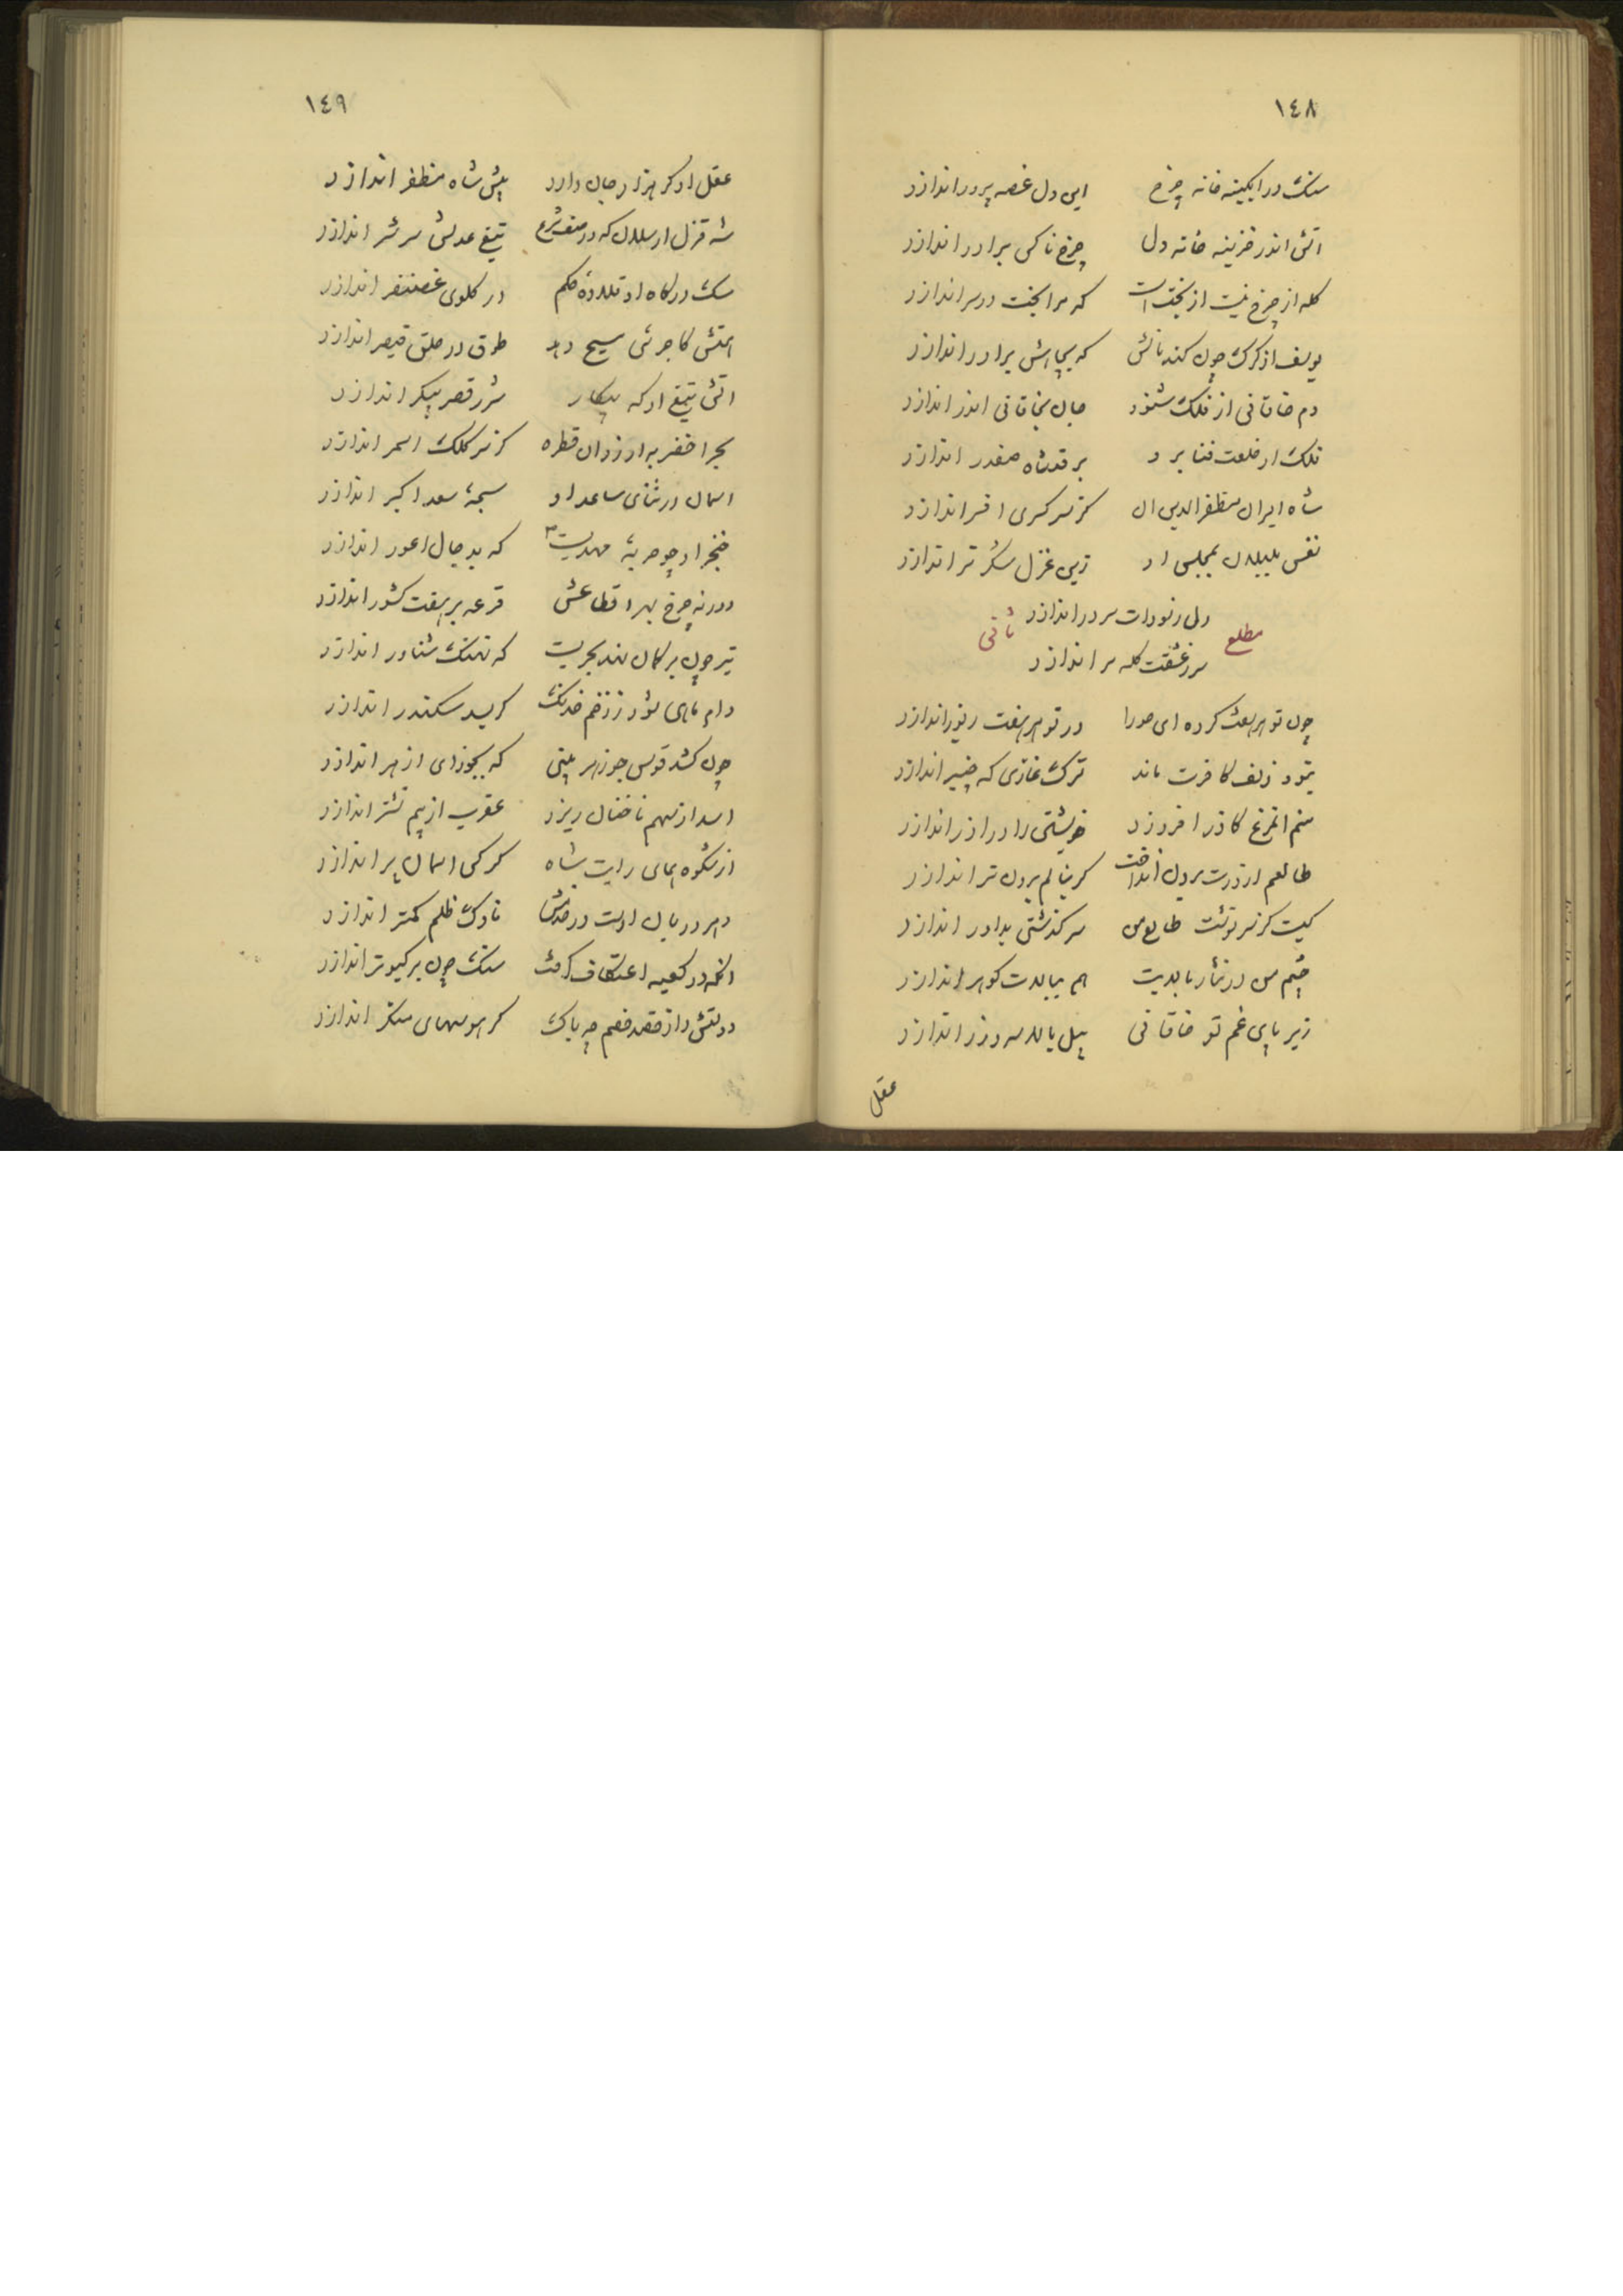 ١٤٨
سنک در ابکینه خانه چرخ این دل غصه پرور اندازد
اتش اندر خزینه خانه دل چرخ ناکس برادر اندازد
کله از چرخ نیست از بختست که مرا بخت در سر اندازد
یوسف از کرک چون کند نالش که بچاهش برادر اندازد
دم خاقانی از فلک شنود جان بخاقانی اندر اندازد
فلک از خلعت فنا برد بر قد شاه صفدر اندازد
شاه ایران مظفرالدین ان کز سر کسری افسر اندازد
نفس بلبلان بمجلس او زین غزل شکر تر اندازد
مطلع ثانی
دل ز سودات سر در اندازد
سر ز عشقت کله بر اندازد
چون تو هر هفت کرده ای حورا در تو هر هفت زیور اندازد
بتو و زلف کافرت ماند ترک غازی که چنبر اندازد
منم ان مرغ کاذر افروزد خویشتن را در اذر اندازد
طالعم از درت برون انداخت کر بنالم برون تر اندازد
کیست کز سرنوشت طالع من سرکذشتی بداور اندازد
چشم من در نثار بالایت هم ببالات کوهر اندازد
زیر پای غم تو خاقانی پیل بالا سر و زر اندازد
عقل
١٤٩
عقل او کر هزار جان دارد پیش شاه مظفر اندازد
شه قزل ارسلان که در صف شرع تیغ عدلش سر شر اندازد
سک درکاه او قلاده حکم در کلوی غضنفر اندازد
طوق در حلق قیصر اندازد
اتش تیغ او که پیکار شرر قصر پیکر اندازد
بحر اخضر به از زان قطره کز سر کلک اسمر اندازد
اسمان در ثنای ساعد او سبحهٔ سعد اکبر اندازد
خنجر او چو حربهٔ مهدیست که بدجال اعور اندازد
دور نه چرخ بهر اقطاعش قرعه بر هفت کشور اندازد
تیر چون بر کمان نهد بحریست که نهنک شناور اندازد
دام ماهی شود ز زخم خدنک کر بسد سکندر اندازد
چون کشد قوس جوزهر بینی که بجوزای ازهر اندازد
اسد از سهم ناخنان ریزد عقرب از بیم نشتر اندازد
از شکوه همای رایت شاه کرکس اسمان پر اندازد
ناوک ظلم کمتر اندازد
انکه در کعبه اعتکاف کرفت سنک چون بر کبوتر اندازد
دولتش را ز قصد خصم چه باک کر هوسهای منکر اندازد